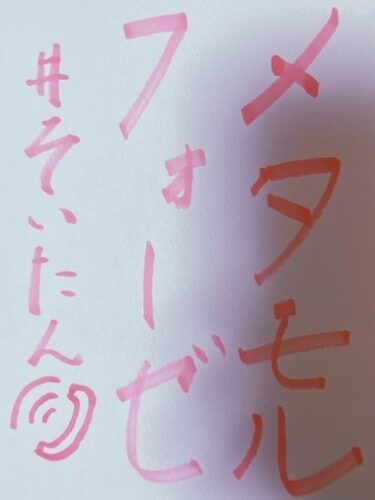 メタモル
フォーゼ
#そいたん